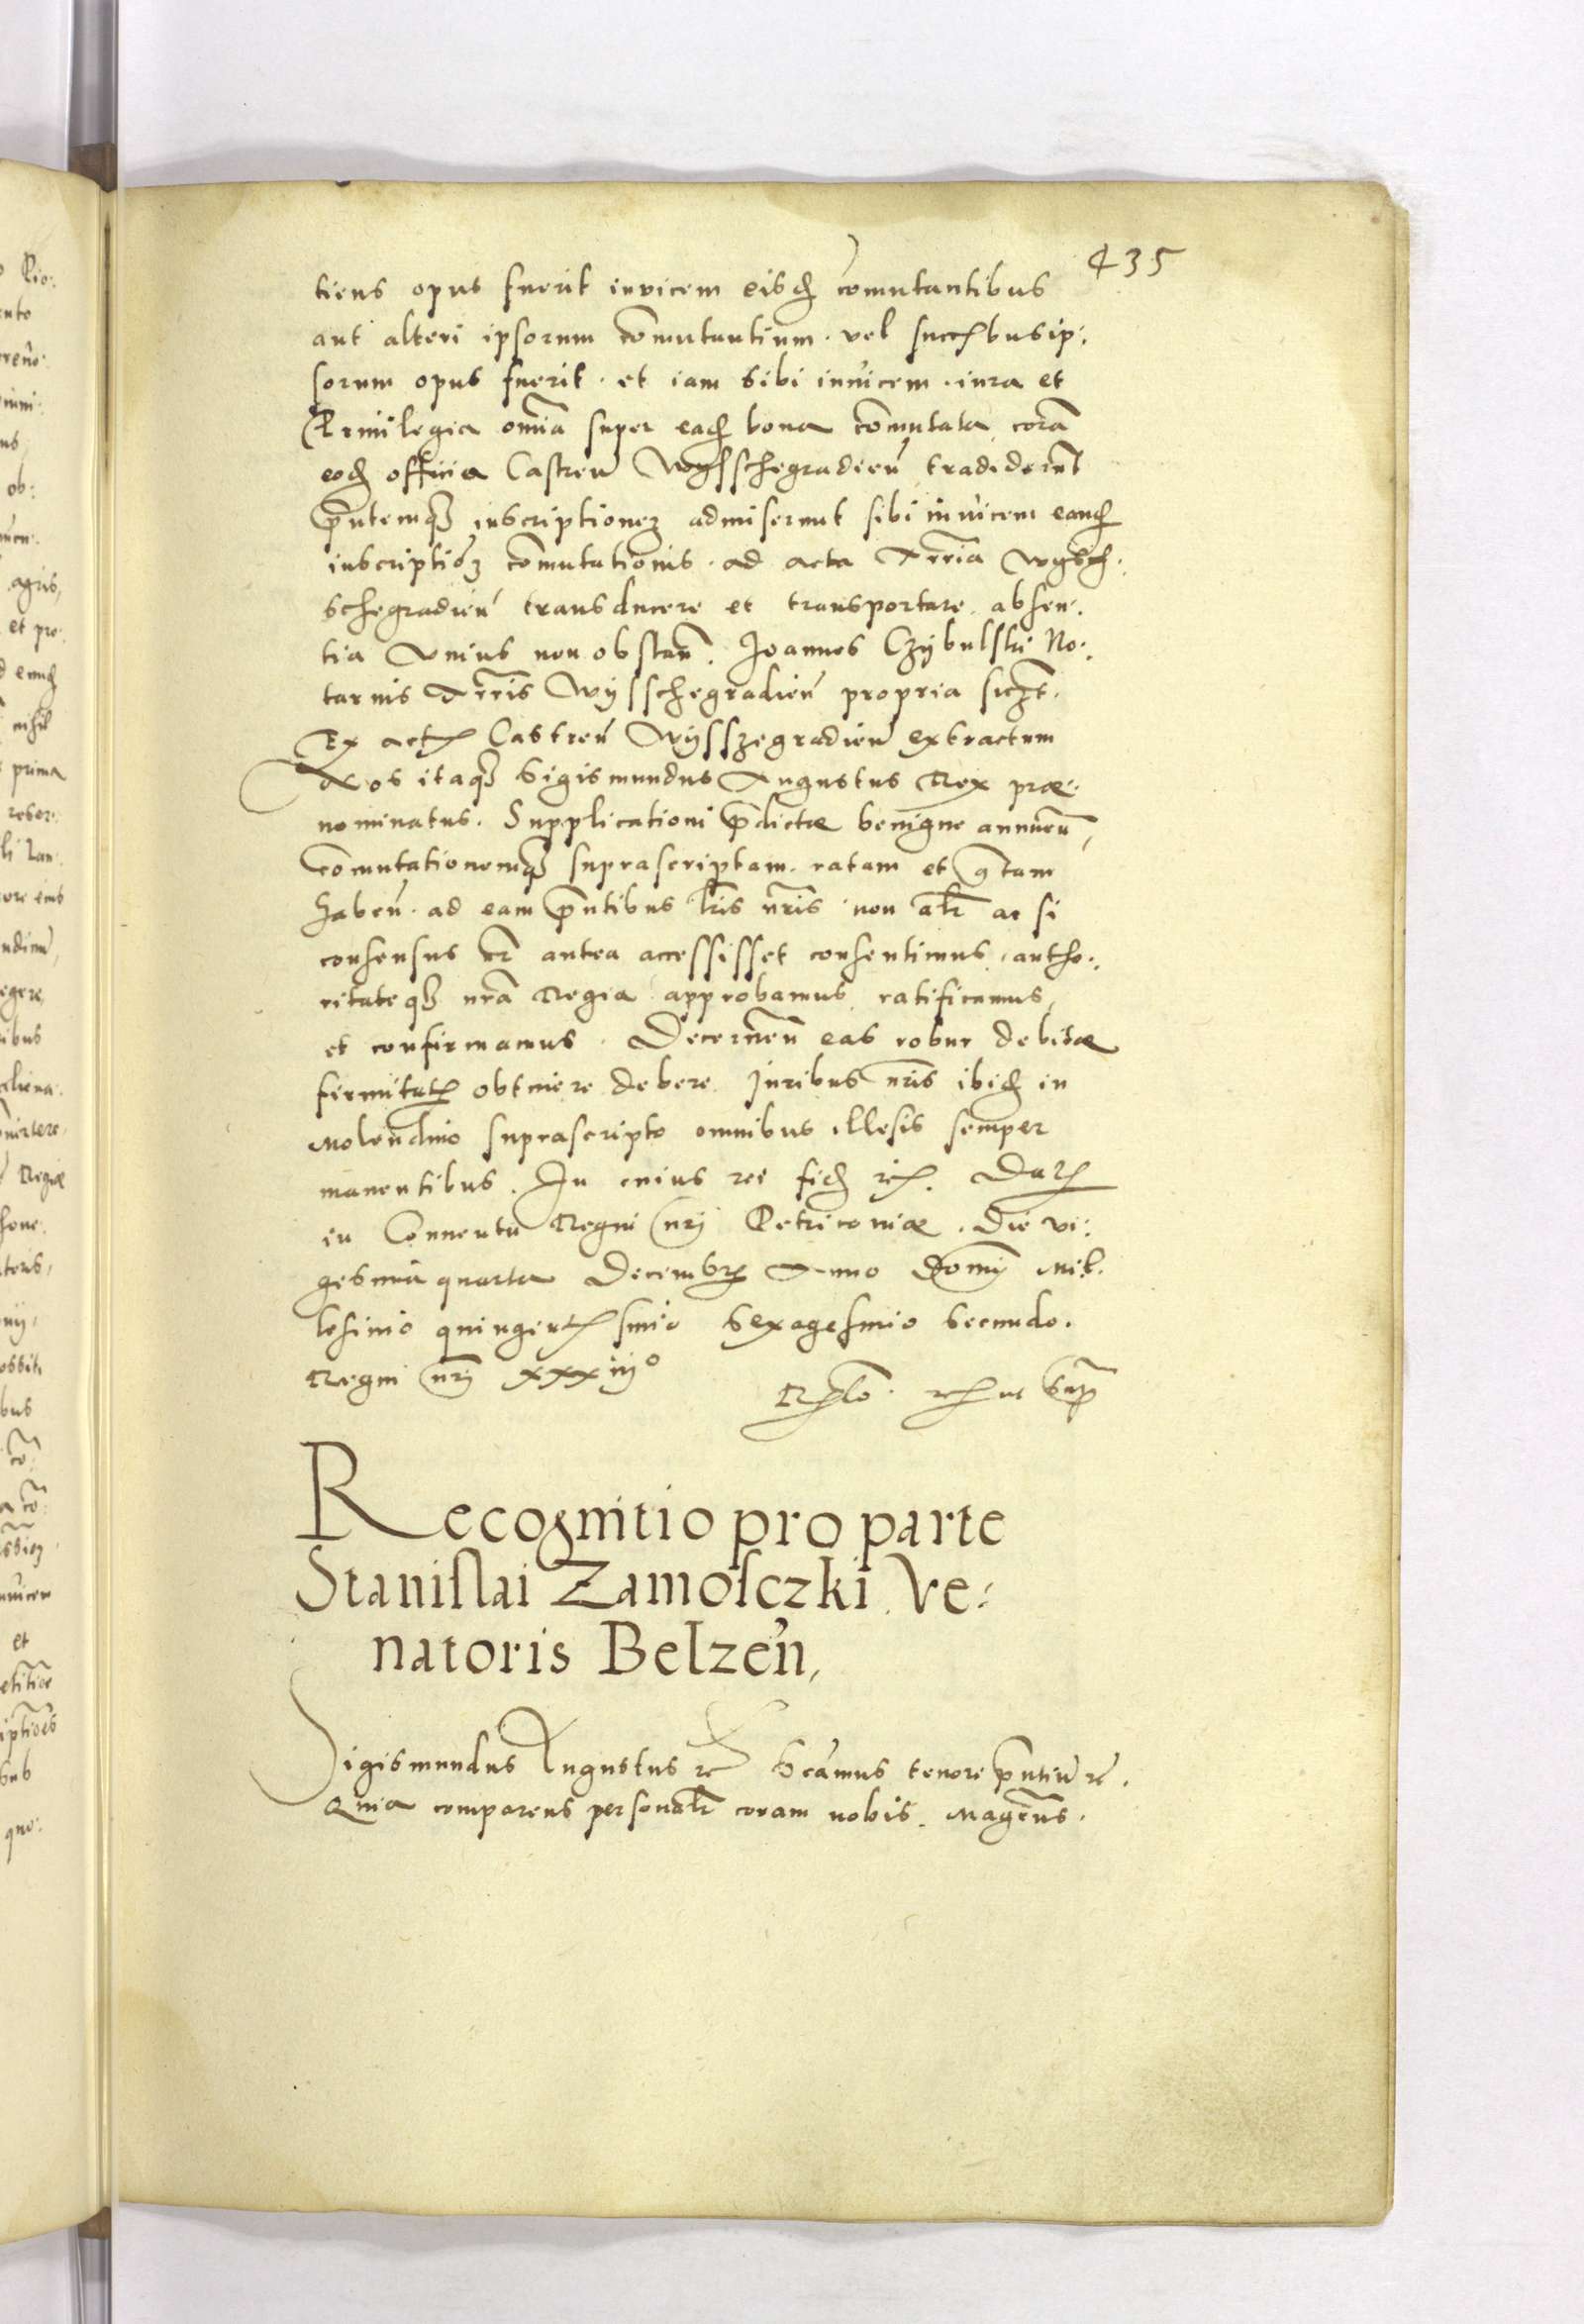 435
tiens opus fuerit invicem eisd comutantibus
aut alteri ipsorum comutantium. vel succbus ip:
sorum opus fuerit. et iam sibi inuicem. iura et
Priuilegia omia super ead bona comutata cora
eod officia Castren Wysschegradien tradiderunt
pntemq inscriptionez admiserunt sibi inuicem eand
inscriptioz comutationis. ad acta Trria Wysch:
schegradien transducere et transportare. absen:
tia Vnius non obstan. Joannes Czybulski No:
tarius Trris Wysschegradien propria
Ex act Castren Wysszegradien extractum
Nos itaq Sigismundus Augustus Rex præ:
nominatus. Supplicationi pdictæ benigne annuen,
comutationemq suprascriptam. ratam et gtam
haben. ad eam pntibus lris nris non alr ac si
consensus nr antea accessisset consentimus, autho:
ritateq nra Regia approbamus ratificamus,
et confirmamus. Decernen eas robur debitæ
firmitat obtinere debere. Juribus nris ibid in
Molendino suprascripto omnibus illesis semper
manentibus. In cuius rei fid rc. Dat
in Conuentu Regni nrj Petricouiæ. Die vi:
gesima quarta Decembr Anno Domi Mil:
lesimo quingent smio Sexagesimo Secundo.
Regni nrj xxxiij°
Rlo. rc ut sup
Recognitio pro parte
Stanislai Zamosczki Ve:
natoris Belzen,
Sigismundus Augustus rc Scamus tenore pntiu rc.
Quia comparens personalr coram nobis. Magcus.